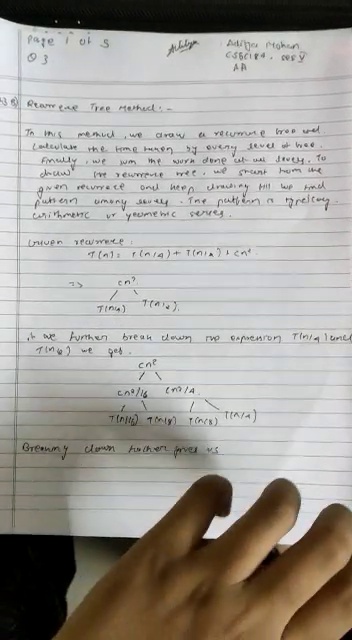 Page 1 of 5
Q3
Aditya Mohan
AA
Recurrence Tree Method:-
In this method, we draw a recurrence tree and
calculate the time taken by every level of tree.
Finally, we sum the work done at all levels. To
draw the recurrence tree, we start from the
given recurrence and keep drawing till we find
pattern among levels. The pattern is typically
arithmetic or geometric series.
Given recurrence:
T(n) = T(n/4) + T(n/2) + cn²
=> cn²
T(n/4) T(n/2)
If we further break down the expression T(n/4) and
T(n/2) we get.
cn²
cn²/16 cn²/4
T(n/16) T(n/8) T(n/8) T(n/4)
Breaking down further gives us